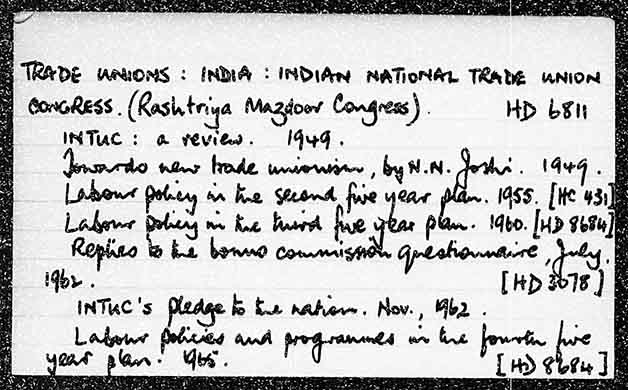 TRADE UNIONS : INDIA : INDIAN NATIONAL TRADE UNION
CONGRESS. (Rashtriya Mazdoor Congress). HD 6811
INTUC : a review. 1949.
Towards new trade unionism, by N.N. Joshi. 1949.
Labour policy in the second five year plan. 1955. [HC 431]
Labour policy in the third five year plan. 1960. [HD 8684]
Replies to the bonus commission questionnaire, July.
1962. [HD 3078]
INTUC's pledge to the nation. Nov., 1962.
Labour policies and programmes in the fourth five
year plan. 1965. [HD 8684]